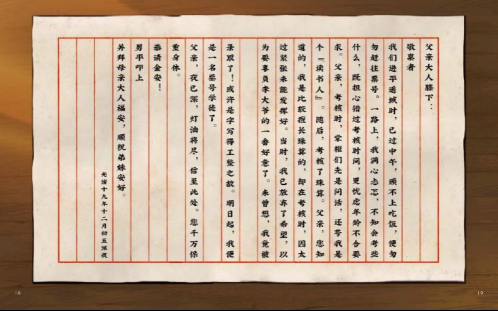 父亲大人膝下：
敬禀者
我们进平遥城时，已过中午，顾不上吃饭，便匆
匆赶往票号。一路上，我满心忐忑，不知会考些
什么，既担心错过考核时间，更忧虑年龄不合要
求。父亲，考核时，掌柜们先是问话，还夸我是
个『读书人』。随后，考核了珠算。父亲，您知
道的，我是比较擅长珠算的，却在考核时，因太
过紧张未能发挥好。当时，我已放弃了希望，以
为要辜负李大爷的一番好意了。未曾想，我竟被
录取了！或许是字写得工整之故。明日起，我便
是一名票号学徒了。
父亲，夜已深，灯油将尽，信至此处。您千万保
重身体。
恭请金安！
男平叩上
并拜母亲大人福安，顺祝弟妹安好。
光绪十九年十二月初五深夜
19